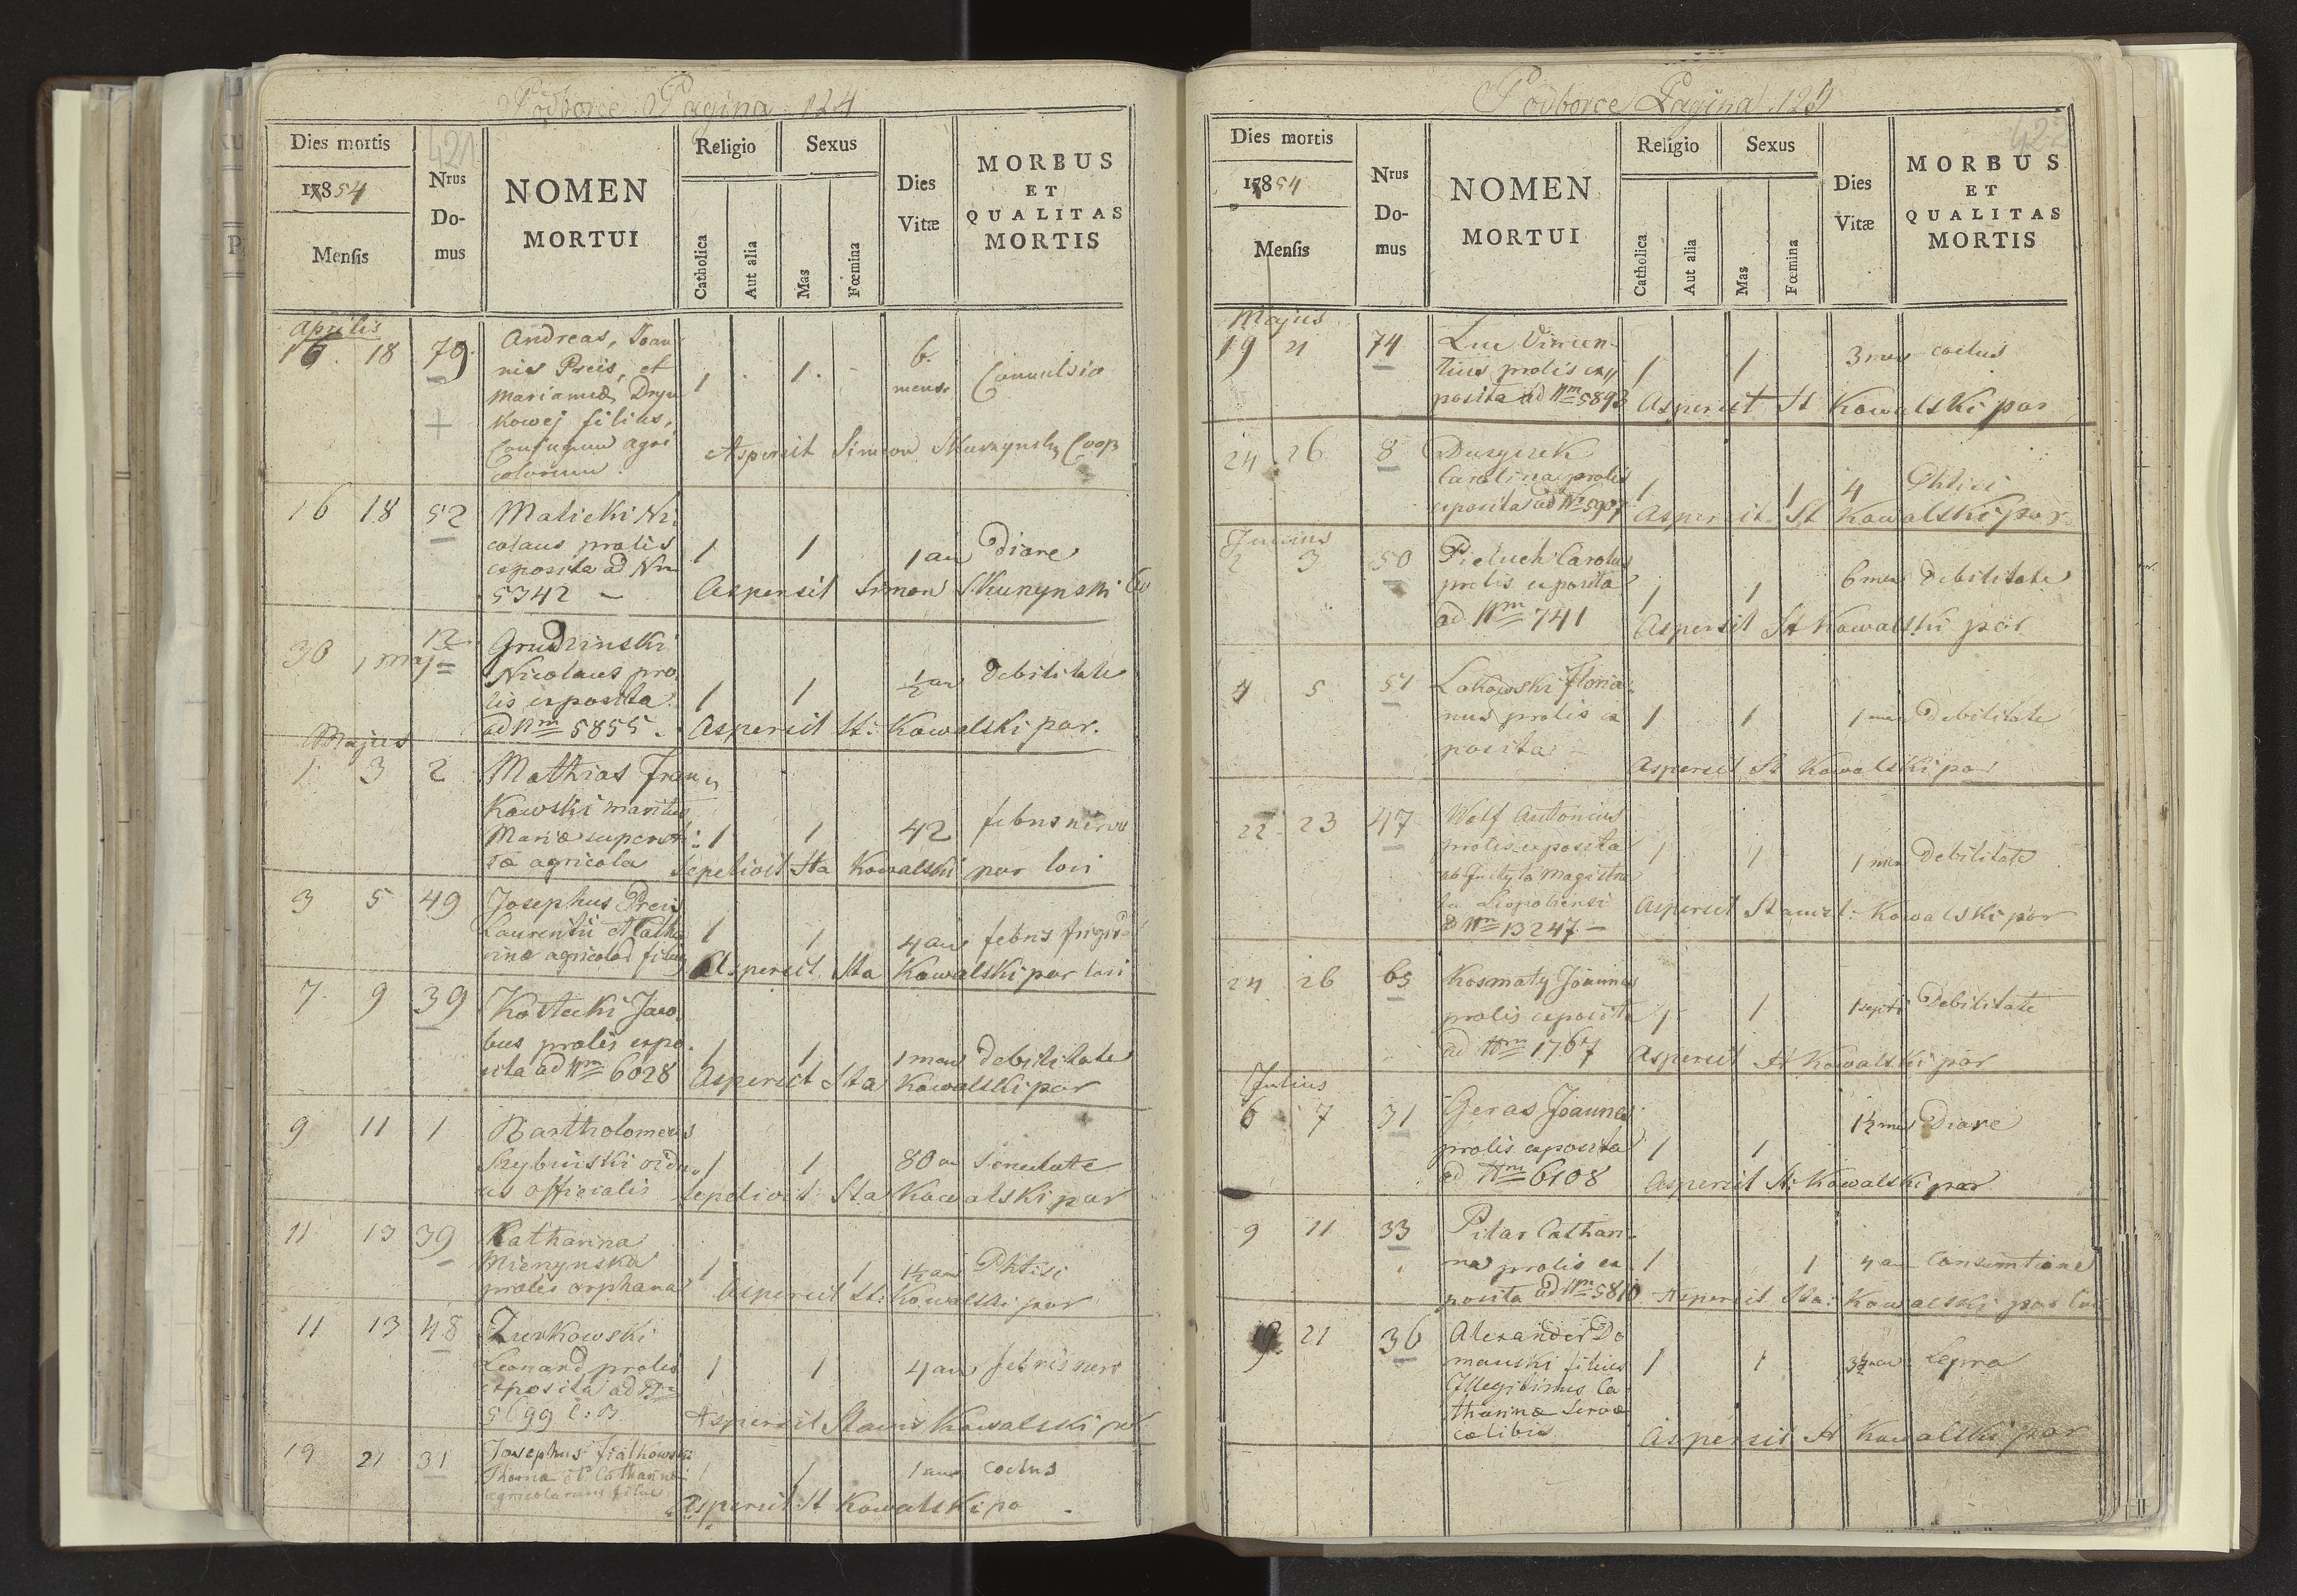 Podborce Pagina 124
421
Dies mortis
17854
Mensis
Nrus Do-mus
NOMEN MORTUI
Religio
Catholica
Aut alia
Sexus
Mas
Fœmina
Dies Vitæ
MORBUS ET QUALITAS MORTIS
Aprilis
16 18 79 Andreas, Joan
nis Preis, et
Mariannæ
kowej filius,
Conjugum agri
colarum.
1 1 6 mens Convulsio
Aspersit Simeon Coop
16 18 52 Malicki Ni
colaus prolis
exposita ad Nrm
5342 –
1 1 1 an Diare
Aspersit Simon
30 1 Maj 12 Grudzinski
Nicolaus pro
lis exposita
ad Nm 5855.
1 1 ½ an Debilitate
Aspersit St: Kowalski par.
Majus
1 3 2 Mathias Fran
kowski maritus
Mariæ
agricola
1 1 42 febris
Sepelivit Sta Kowalski par loci
3 5 49 Josephus Preis
Laurentii et Catha
rinæ filius
1 1 4 an febris frigida
Aspersit Sta Kowalski par loci
7 9 39 Kostecki Jaco
bus prolis expo
sita ad Nm 6028
1 1 1 mens debilitate
Aspersit Sta Kowalski par
9 11 1 Bartholomeus
Szybinski vidu
us officialis
1 1 80 an senectute
Sepelivit Sta Kowalski par
11 13 39 Catharina
prolis orphana
1 1 1½ an Phtisi
Aspersit St: Kowalski par
11 13 48 Zurkowski
Leonard prolis
exposita ad Nm
1 1 4 an febris nerv
Aspersit Stanis Kowalski par
19 21 31 Josephus Fialkowski
Thoma et Catharina
agricolarum filius
1 1 1 an coctus
Aspersit St Kowalski pa
Podborce Pagina 125
422
Dies mortis
17854
Mensis
Nrus Do-mus
NOMEN MORTUI
Religio
Catholica
Aut alia
Sexus
Mas
Fœmina
Dies Vitæ
MORBUS ET QUALITAS MORTIS
Majus
19 21 74 Luc Vincen
tius prolis ex
posita ad Nm 5893
1 1 3 mens coctus
Aspersit St Kowalski par
24 26 8
Carolina prolis
exposita ad Nm 5907
1 1 4 Phtisi
Aspersit St Kowalski par
Junius
2 3 50 Pieluch Carolus
prolis exposita
ad Nm 741
1 1 6 mens Debilitate
Aspersit St Kowalski par
4 5 51 Lakowski Floria
nus prolis ex
posita –
1 1 1 mens Debilitate
Aspersit St Kowalski par
22 23 47 Wolf Antonius
prolis exposita
ab Inclyto Magistra
tu Leopoliensi
ad Nm 13247 –
1 1 1 mens Debilitate
Aspersit Stanisl: Kowalski par
24 26 65 Kosmaty Joannes
prolis exposita
ad Nm 1767
1 1 1 septi Debilitate
Aspersit St Kowalski par
Julius
6 7 31 Geras Joannes
prolis exposita
ad Nm 6108
1 1 1½ mens Diare
Aspersit St: Kowalski par
9 11 33 Pilar Cathari
na prolis ex
posita ad Nm 5810
1 1 4 an Consumtione
Aspersit Sta: Kowalski par loci
19 21 36 Alexander Do
manski filius
Illegitimus Ca
tharinæ servæ
cælibis
1 1 3½ an Lepra
Aspersit St Kowalski par